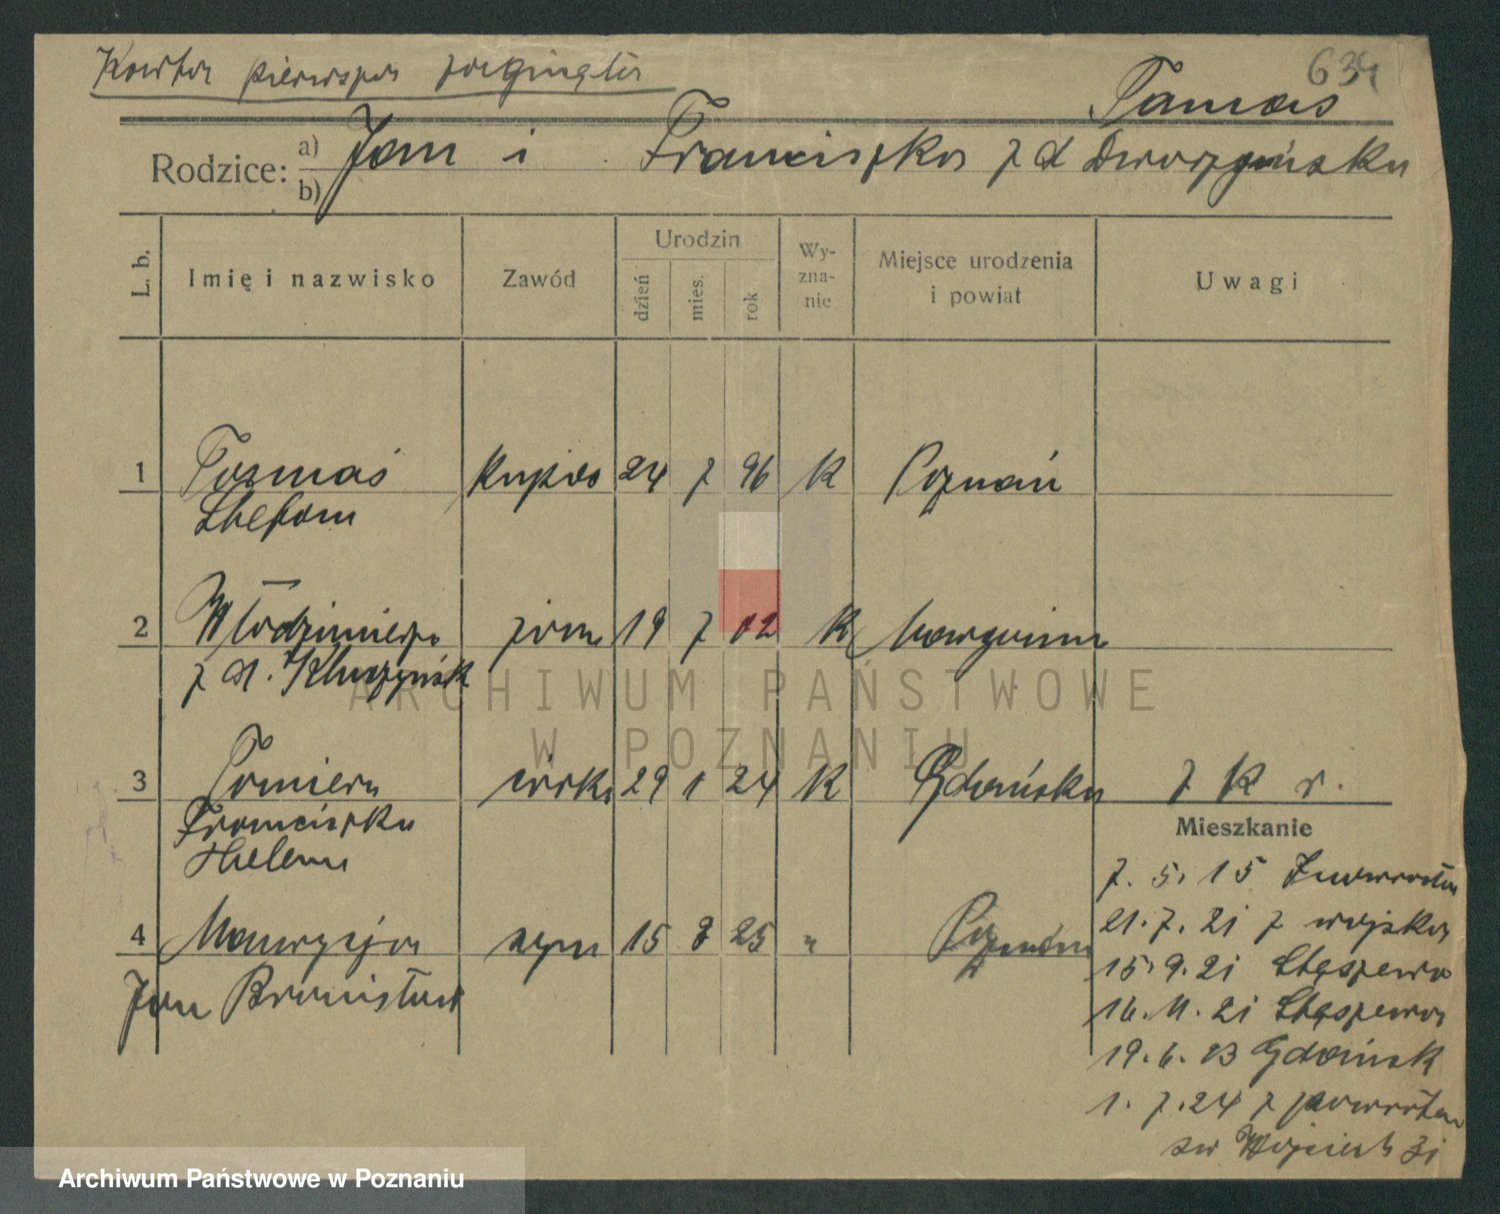 Karta pierwsza zaginęła
634
Tomaś
Rodzice: a) Jan i Franciszka z d Dworzyńska
b)
L. b.
Imię i nazwisko
Zawód
Urodzin
dzień
mies.
rok
Wy-
zna-
nie
Miejsce urodzenia
i powiat
Uwagi
1 Tomaś kupiec 24 7 96 K Poznań
Stefan
2 Włodzimiera żona 19 7 02 K
z d.
3 córka 29 1 24 K Gdańsk
Franciszka
Helena
4 syn 15 25 " Poznań
Jan Bronisław
Mieszkanie
7. 5. 15
21. 7. 21 z wojska
15. 9. 21 Stęszewo
16. 11. 21 Stęszewa
19. 6. 23 Gdańsk
1. 7. 24 z powrotem
św Wojciech 31
ARCHIWUM PAŃSTWOWE
W POZNANIU
Archiwum Państwowe w Poznaniu